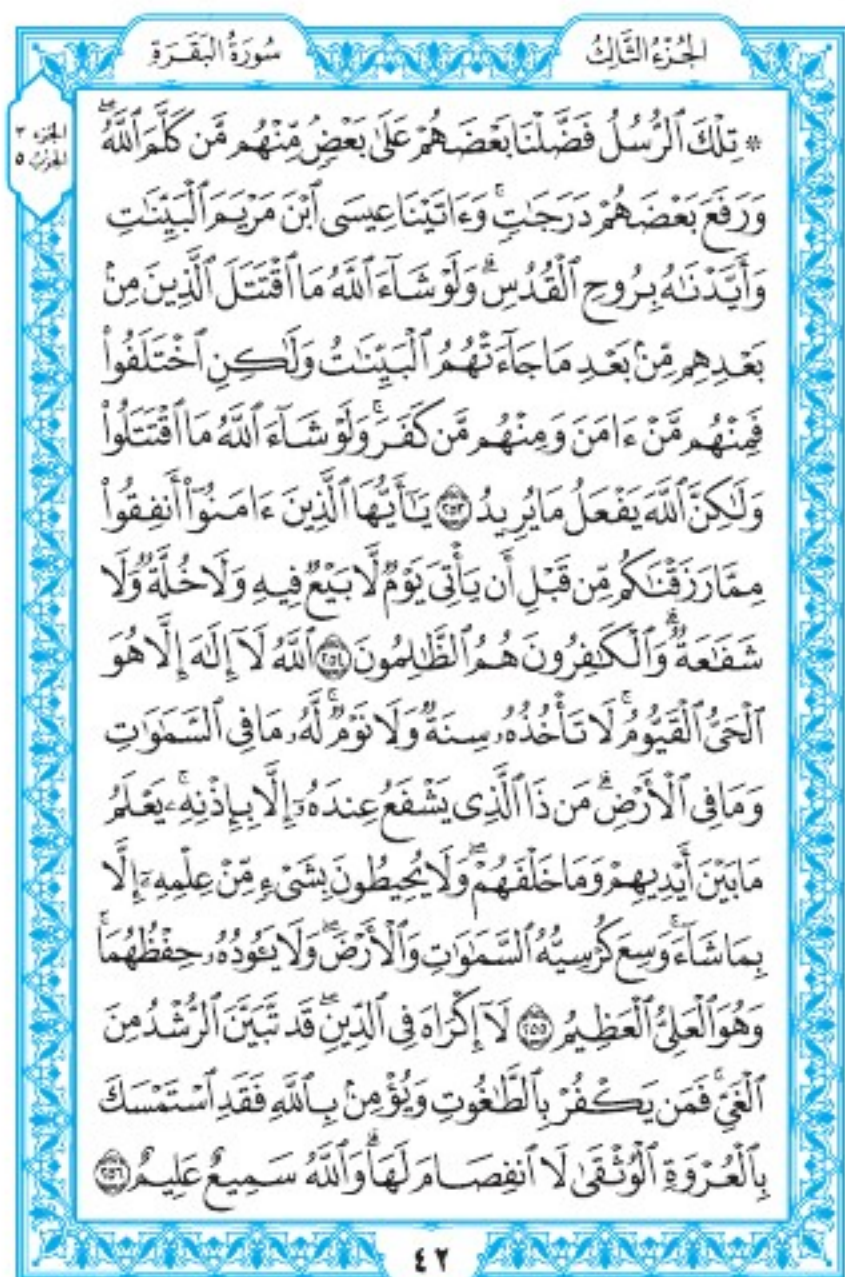 الجُزْءُ الثَّالِثُ
سُورَةُ البَقَرَةِ
الجزء ٣
الحزب ٥
۞ تِلْكَ ٱلرُّسُلُ فَضَّلْنَا بَعْضَهُمْ عَلَىٰ بَعْضٍۘ مِّنْهُم مَّن كَلَّمَ ٱللَّهُۖ
وَرَفَعَ بَعْضَهُمْ دَرَجَٰتٍۚ وَءَاتَيْنَا عِيسَى ٱبْنَ مَرْيَمَ ٱلْبَيِّنَٰتِ
وَأَيَّدْنَٰهُ بِرُوحِ ٱلْقُدُسِۗ وَلَوْ شَآءَ ٱللَّهُ مَا ٱقْتَتَلَ ٱلَّذِينَ مِنۢ
بَعْدِهِم مِّنۢ بَعْدِ مَا جَآءَتْهُمُ ٱلْبَيِّنَٰتُ وَلَٰكِنِ ٱخْتَلَفُوا۟
فَمِنْهُم مَّنْ ءَامَنَ وَمِنْهُم مَّن كَفَرَۚ وَلَوْ شَآءَ ٱللَّهُ مَا ٱقْتَتَلُوا۟
وَلَٰكِنَّ ٱللَّهَ يَفْعَلُ مَا يُرِيدُ ٢٥٣ يَٰٓأَيُّهَا ٱلَّذِينَ ءَامَنُوٓا۟ أَنفِقُوا۟
مِمَّا رَزَقْنَٰكُم مِّن قَبْلِ أَن يَأْتِىَ يَوْمٌ لَّا بَيْعٌ فِيهِ وَلَا خُلَّةٌ وَلَا
شَفَٰعَةٌۗ وَٱلْكَٰفِرُونَ هُمُ ٱلظَّٰلِمُونَ ٢٥٤ ٱللَّهُ لَآ إِلَٰهَ إِلَّا هُوَ
ٱلْحَىُّ ٱلْقَيُّومُۚ لَا تَأْخُذُهُۥ سِنَةٌ وَلَا نَوْمٌۚ لَّهُۥ مَا فِى ٱلسَّمَٰوَٰتِ
وَمَا فِى ٱلْأَرْضِۗ مَن ذَا ٱلَّذِى يَشْفَعُ عِندَهُۥٓ إِلَّا بِإِذْنِهِۦۚ يَعْلَمُ
مَا بَيْنَ أَيْدِيهِمْ وَمَا خَلْفَهُمْۖ وَلَا يُحِيطُونَ بِشَىْءٍ مِّنْ عِلْمِهِۦٓ إِلَّا
بِمَا شَآءَۚ وَسِعَ كُرْسِيُّهُ ٱلسَّمَٰوَٰتِ وَٱلْأَرْضَۖ وَلَا يَـُٔودُهُۥ حِفْظُهُمَاۚ
وَهُوَ ٱلْعَلِىُّ ٱلْعَظِيمُ ٢٥٥ لَآ إِكْرَاهَ فِى ٱلدِّينِۖ قَد تَّبَيَّنَ ٱلرُّشْدُ مِنَ
ٱلْغَىِّۚ فَمَن يَكْفُرْ بِٱلطَّٰغُوتِ وَيُؤْمِنۢ بِٱللَّهِ فَقَدِ ٱسْتَمْسَكَ
بِٱلْعُرْوَةِ ٱلْوُثْقَىٰ لَا ٱنفِصَامَ لَهَاۗ وَٱللَّهُ سَمِيعٌ عَلِيمٌ ٢٥٦
٤٢